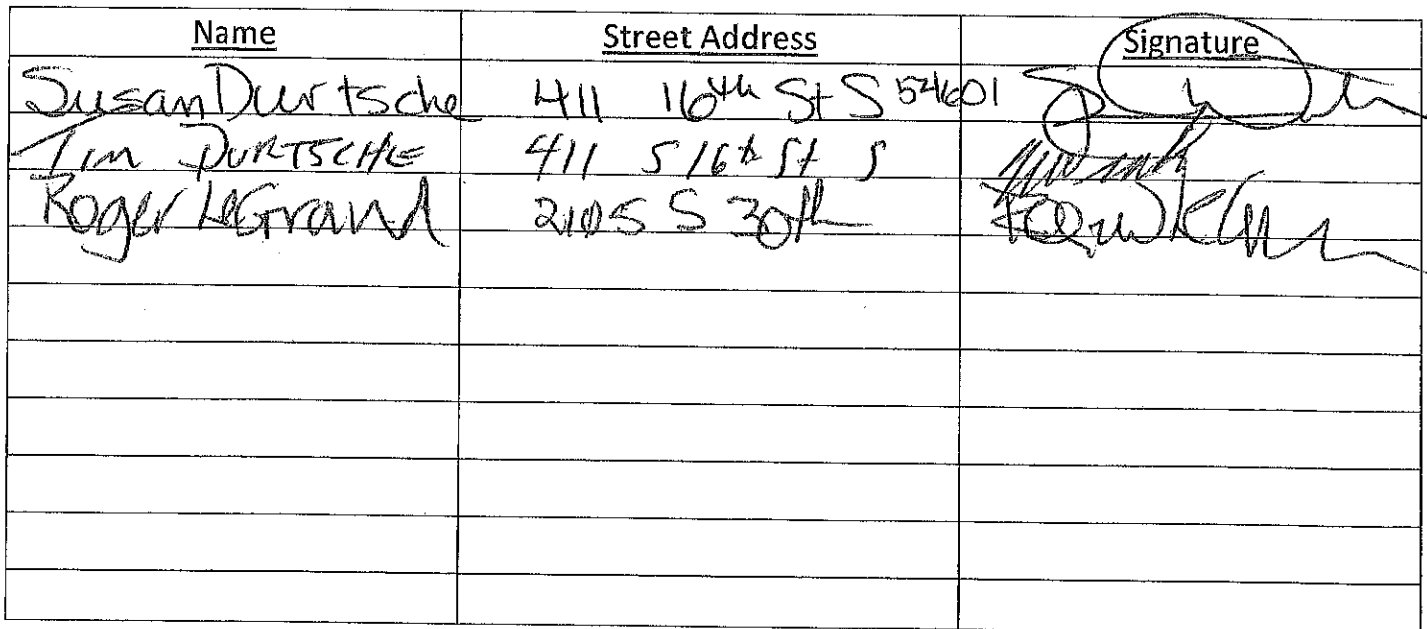 Name Street Address Signature
Susan Durtsche 411 16th St S 54601
Tim DURTSCHE 411 S 16th St S
Roger LeGrand 2105 S 30th